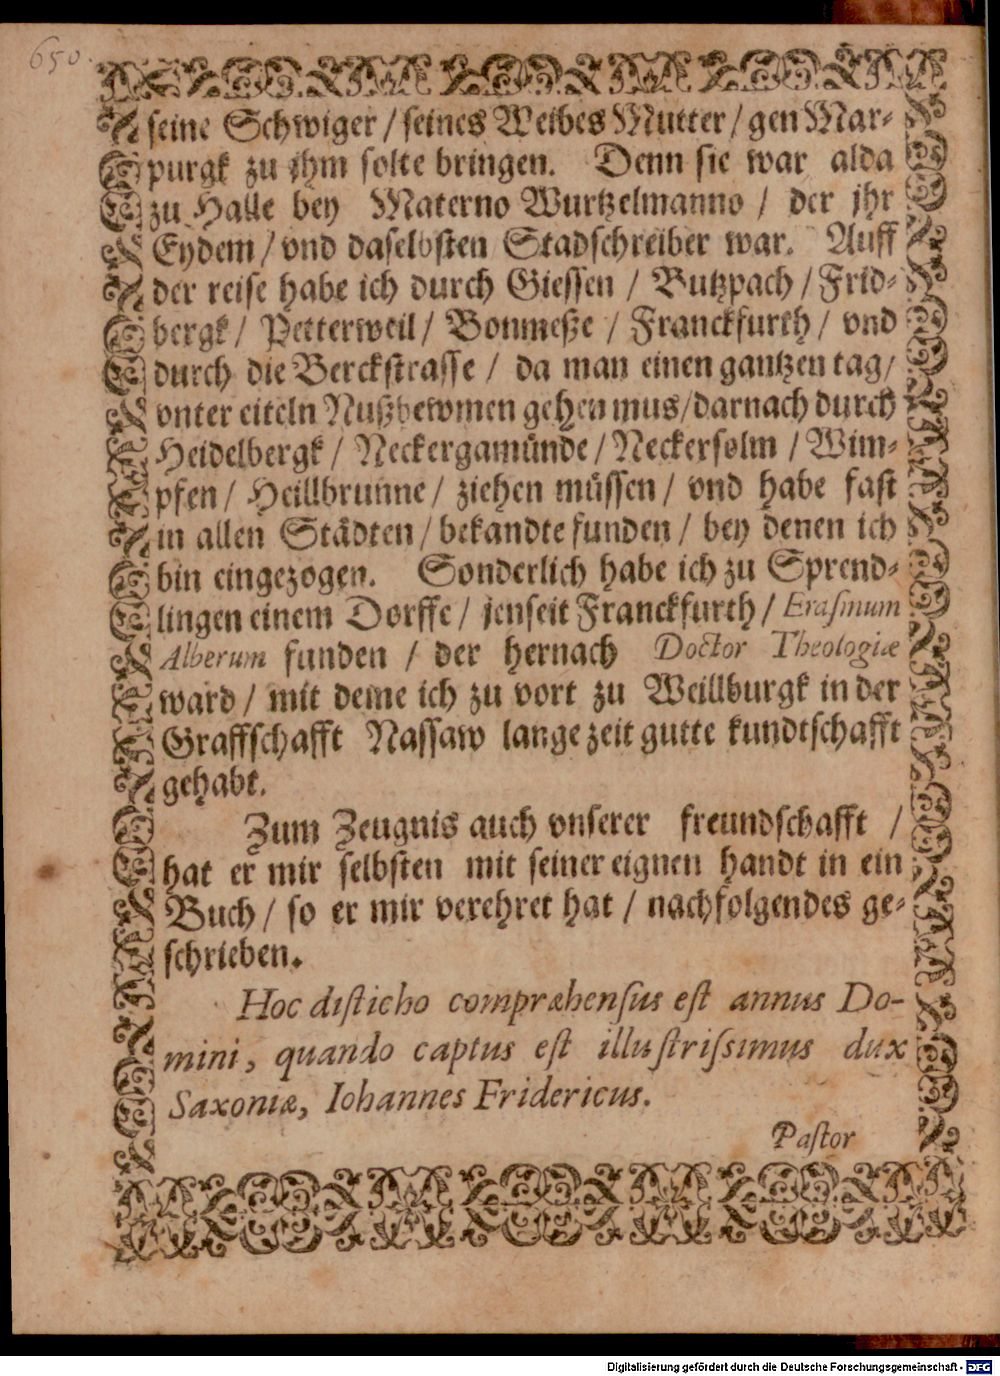 650.
seine Schwiger / seines Weibes Mutter / gen Mar-
purgk zu jhm solte bringen. Denn sie war alda
zu Halle bey Materno Wurtzelmanno / der jhr
Eydem / vnd daselbsten Stadschreiber war. Auff
der reise habe ich durch Giessen / Butzpach / Frid-
bergk / Petterweil / Bonmeße / Franckfurth / vnd
durch die Berckstrasse / da man einen gantzen tag /
vnter eiteln Nußbewmen gehen mus / darnach durch
Heidelbergk / Neckergamünde / Neckersolm / Wim-
pfen / Heillbrunne / ziehen müssen / vnd habe fast
in allen Städten / bekandte funden / bey denen ich
bin eingezogen. Sonderlich habe ich zu Sprend-
lingen einem Dorffe / jenseit Franckfurth / Erasmum
Alberum funden / der hernach Doctor Theologiæ
ward / mit deme ich zu vort zu Weillburgk in der
Graffschafft Nassaw lange zeit gutte kundtschafft
gehabt.
Zum Zeugnis auch vnserer freundschafft /
hat er mir selbsten mit seiner eignen handt in ein
Buch / so er mir verehret hat / nachfolgendes ge-
schrieben.
Hoc disticho compræhensus est annus Do-
mini, quando captus est illustrissimus dux
Saxoniæ, Iohannes Fridericus.
Pastor
Digitalisierung gefördert durch die Deutsche Forschungsgemeinschaft - DFG